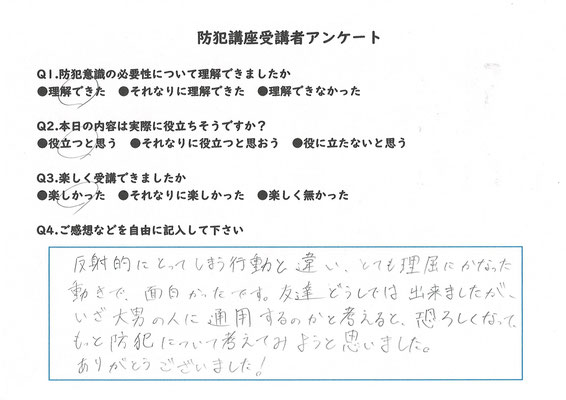 防犯講座受講者アンケート
Q1.防犯意識の必要性について理解できましたか
●理解できた ●それなりに理解できた ●理解できなかった
Q2.本日の内容は実際に役立ちそうですか？
●役立つと思う ●それなりに役立つと思おう ●役に立たないと思う
Q3.楽しく受講できましたか
●楽しかった ●それなりに楽しかった ●楽しく無かった
Q4.ご感想などを自由に記入して下さい
反射的にとってしまう行動と違い、とても理屈にかなった
動きで、面白かったです。友達どうしでは出来ましたが、
いざ大男の人に通用するのかと考えると、恐ろしくなって、
もっと防犯について考えてみようと思いました。
ありがとうございました!